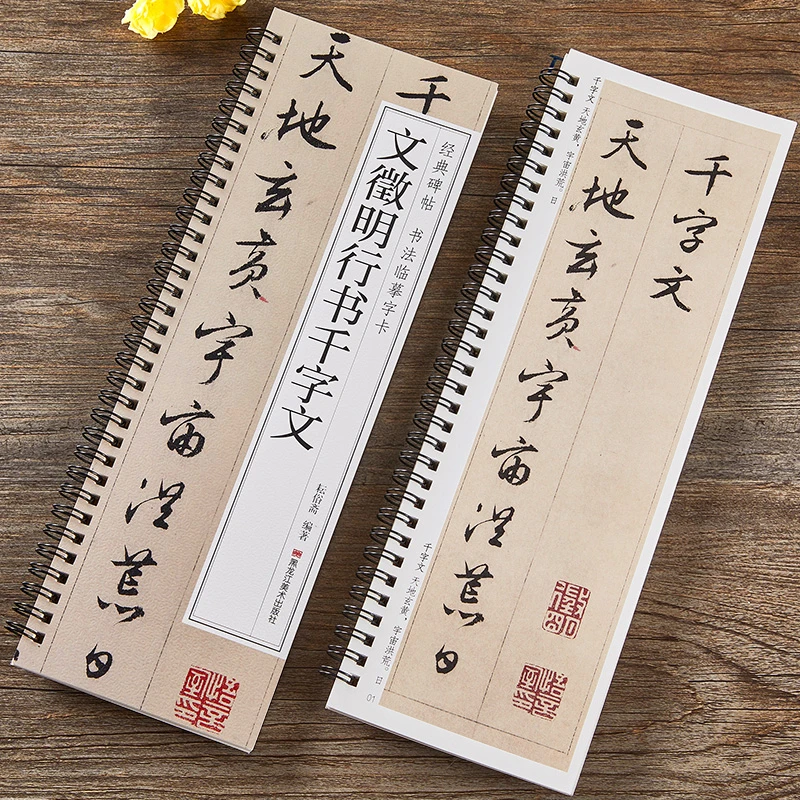 千
天地玄黄宇宙洪荒日
经典碑帖 书法临摹字卡
文徵明行书千字文
耘俗斋 编著
黑龙江美术出版社
千字文 天地玄黄,宇宙洪荒。日
千字文
天地玄黄宇宙洪荒日
徵明
千字文 天地玄黄,宇宙洪荒。日
01